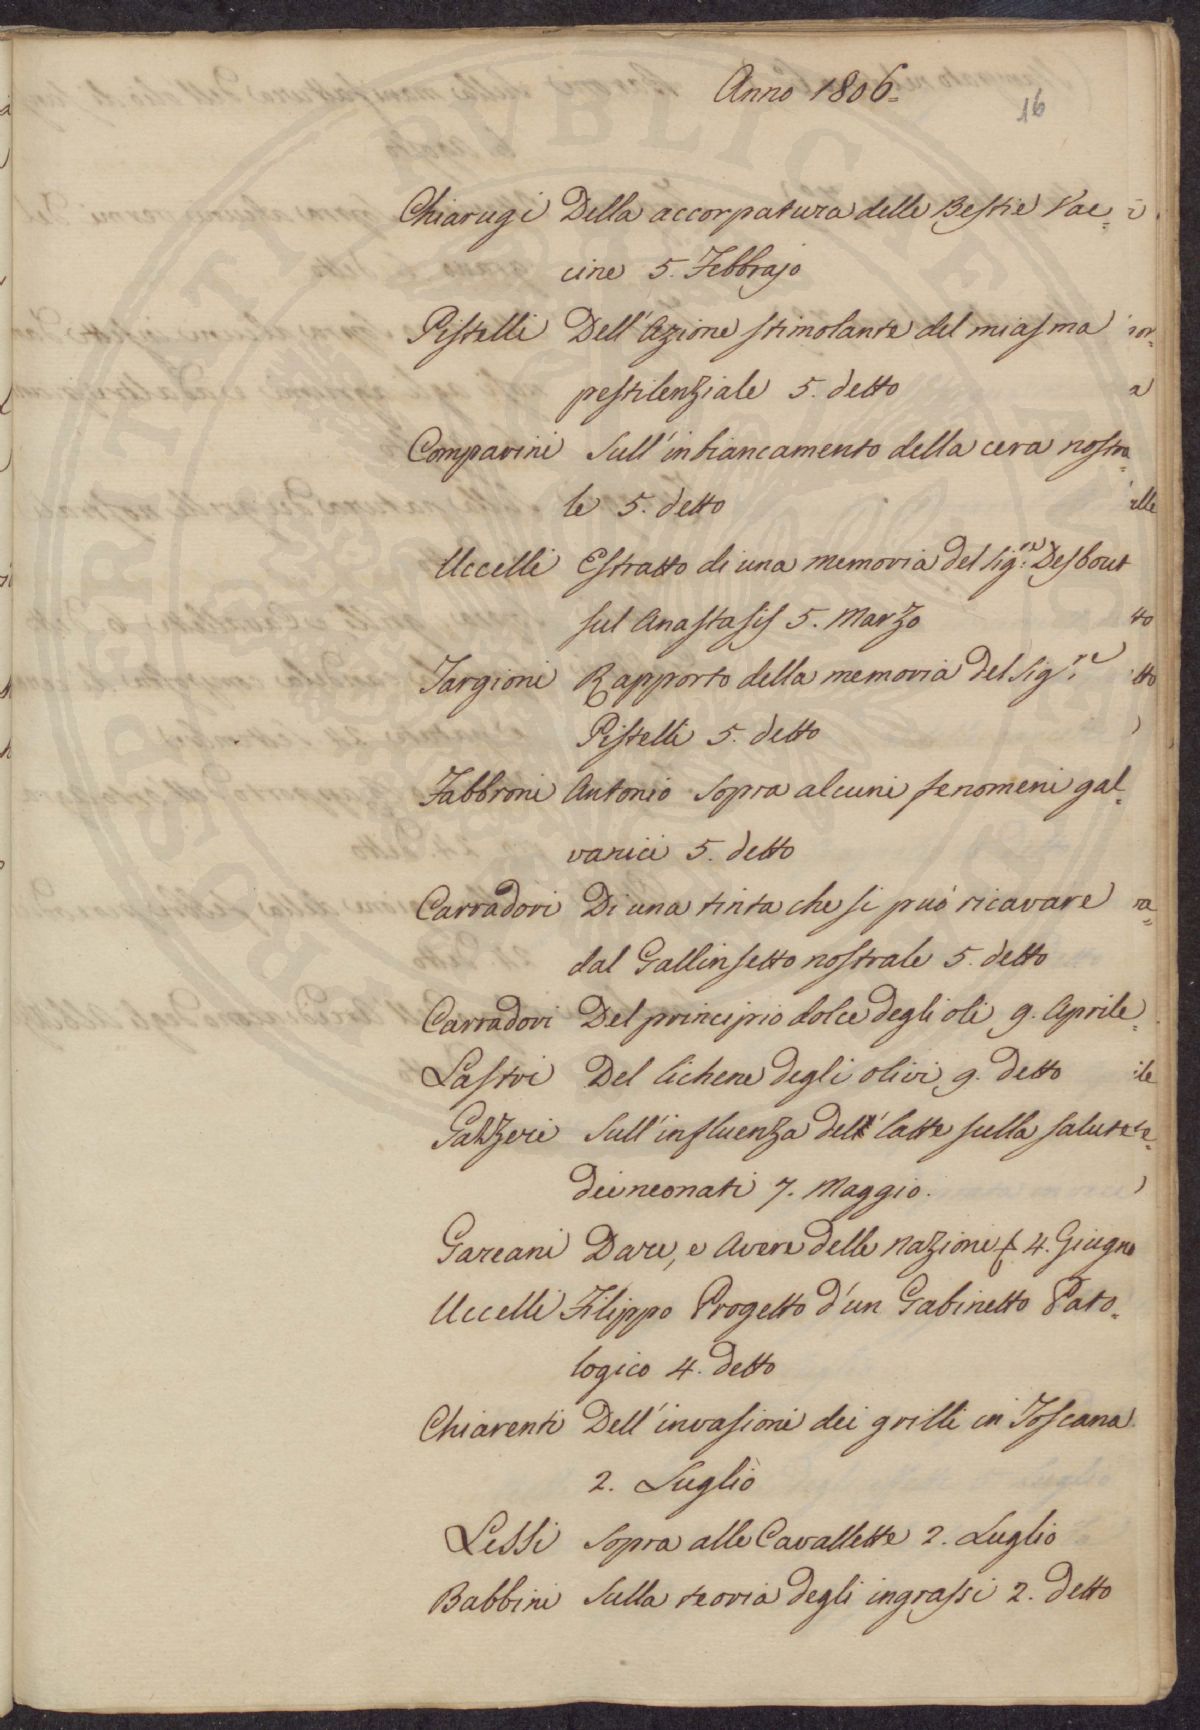 Anno 1806=
16
Chiarugi Della accorpatura delle Bestie Vac=
cine 5. Febbrajo
Pistelli Dell'Azione stimolante del miasma
pestilenziale 5. detto
Comparini Sull'inbiancamento della cera nostra=
le 5. detto
Uccelli Estratto di una memoria del Sig:re Desbout
sul Anastasis 5. Marzo
Targioni Rapporto della memoria del Sig.re
Pistelli 5. detto
Fabbroni Antonio Sopra alcuni fenomeni gal=
vanici 5. detto
Carradori Di una tinta che si può ricavare
dal Gallinsetto nostrale 5. detto
Carradori Del principio dolce degli oli 9. Aprile
Lastri Del lichene degli olivi 9. detto
Galizeri Sull'influenza del latte sulla salute
dei neonati 7. Maggio.
Gareani Dare, e Avere delle Nazioni 4. Giugno
Uccelli Filippo Progetto d'un Gabinetto Pato=
logico 4. detto
Chiarenti Dell'invasioni dei grilli in Toscana
2. Luglio
Lessi Sopra alle Cavallette 2. Luglio
Babbini Sulla teoria degli ingrassi 2. detto